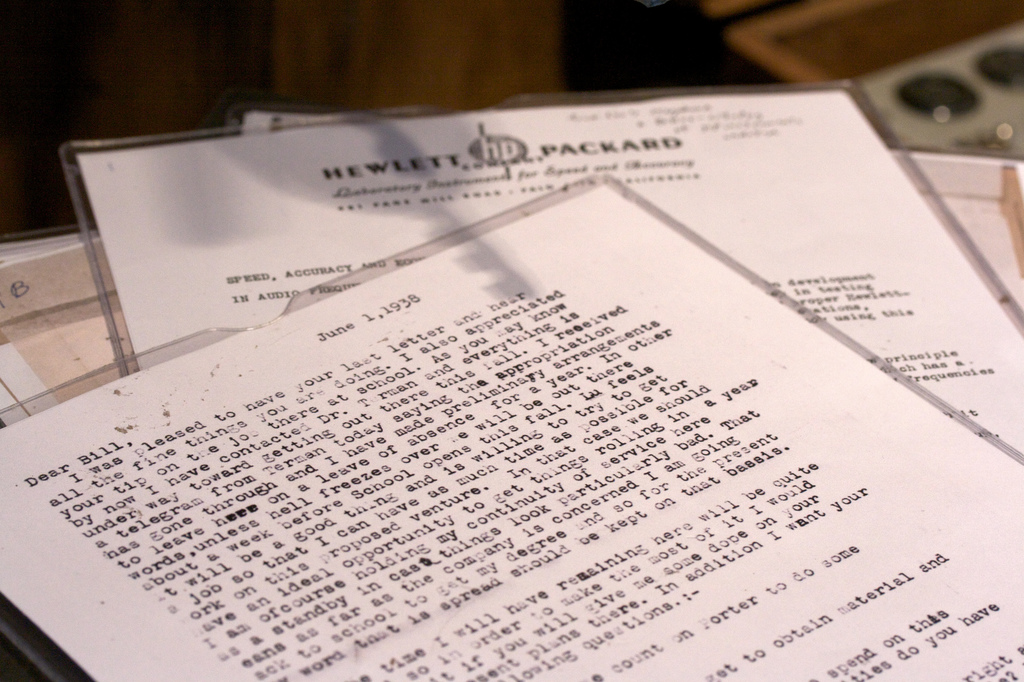 HEWLETT hp PACKARD
Laboratory Instruments for Speed and Accuracy
PAGE MILL ROAD · PALO ALTO, CALIFORNIA
SPEED, ACCURACY AND
IN AUDIO
development
in testing
proper Hewlett-
using this
principle
has a
frequencies
June 1,1938
Dear Bill,
I was pleased to have your last letter and hear
all the fine things you are doing. I also appreciated
your tip on the job there at school. As you may know
by now I have contacted Dr. Terman and everything is
under way toward getting out there this fall. I received
a telegram from Terman today saying the appropriation
has gone through and I have made preliminary arrangements
to leave here on a leave of absence for a year. In other
words,unless hell freezes over we will be out there
about a week before School opens this fall.
it will be a good thing and is willing to try to get
a job so that I can have as much time as possible for
ork on this proposed venture. In that case we should
ave an ideal opportunity to get things rolling
am ofcourse holding my continuity of service here
eans a standby in case things look particularly bad. That
ack to as far as the company is concerned I am going
school to get my degree and so for the present
word what is spread should be kept on that basis.
time I will have remaining here will be quite
so in order to make the most of it I would
it if you will give me some dope on your
esent plans there. In addition I want your
lowing questions.:-
count on Porter to do some
get to obtain material and
spend on this
ties do you have
right